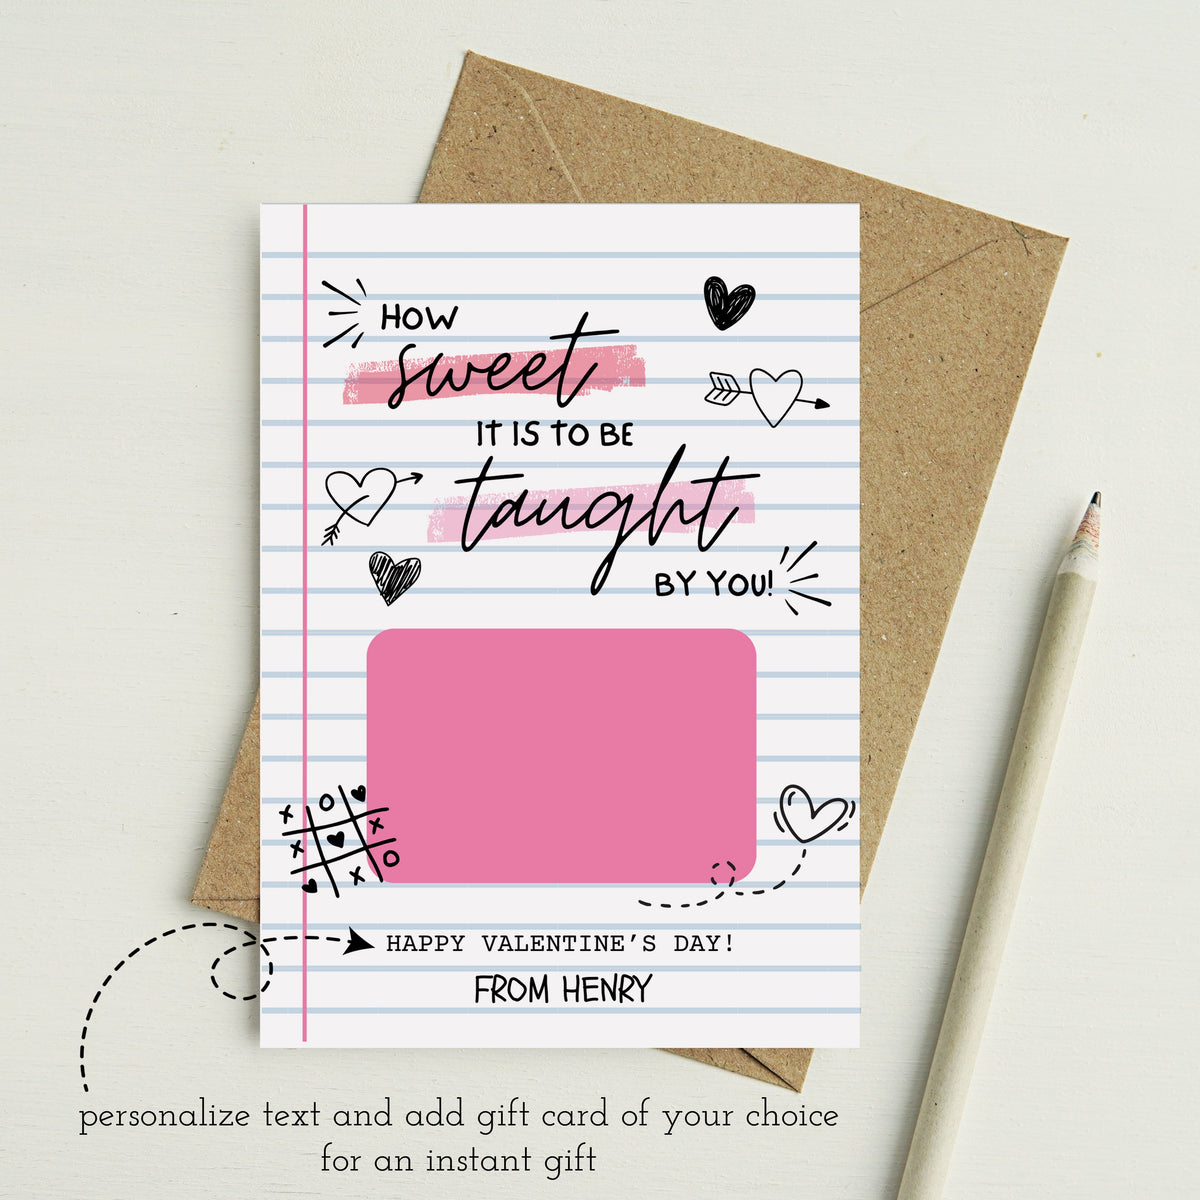 HOW
sweet
IT IS TO BE
taught
BY YOU!
X O
X X
X O
HAPPY VALENTINE'S DAY!
FROM HENRY
personalize text and add gift card of your choice
for an instant gift